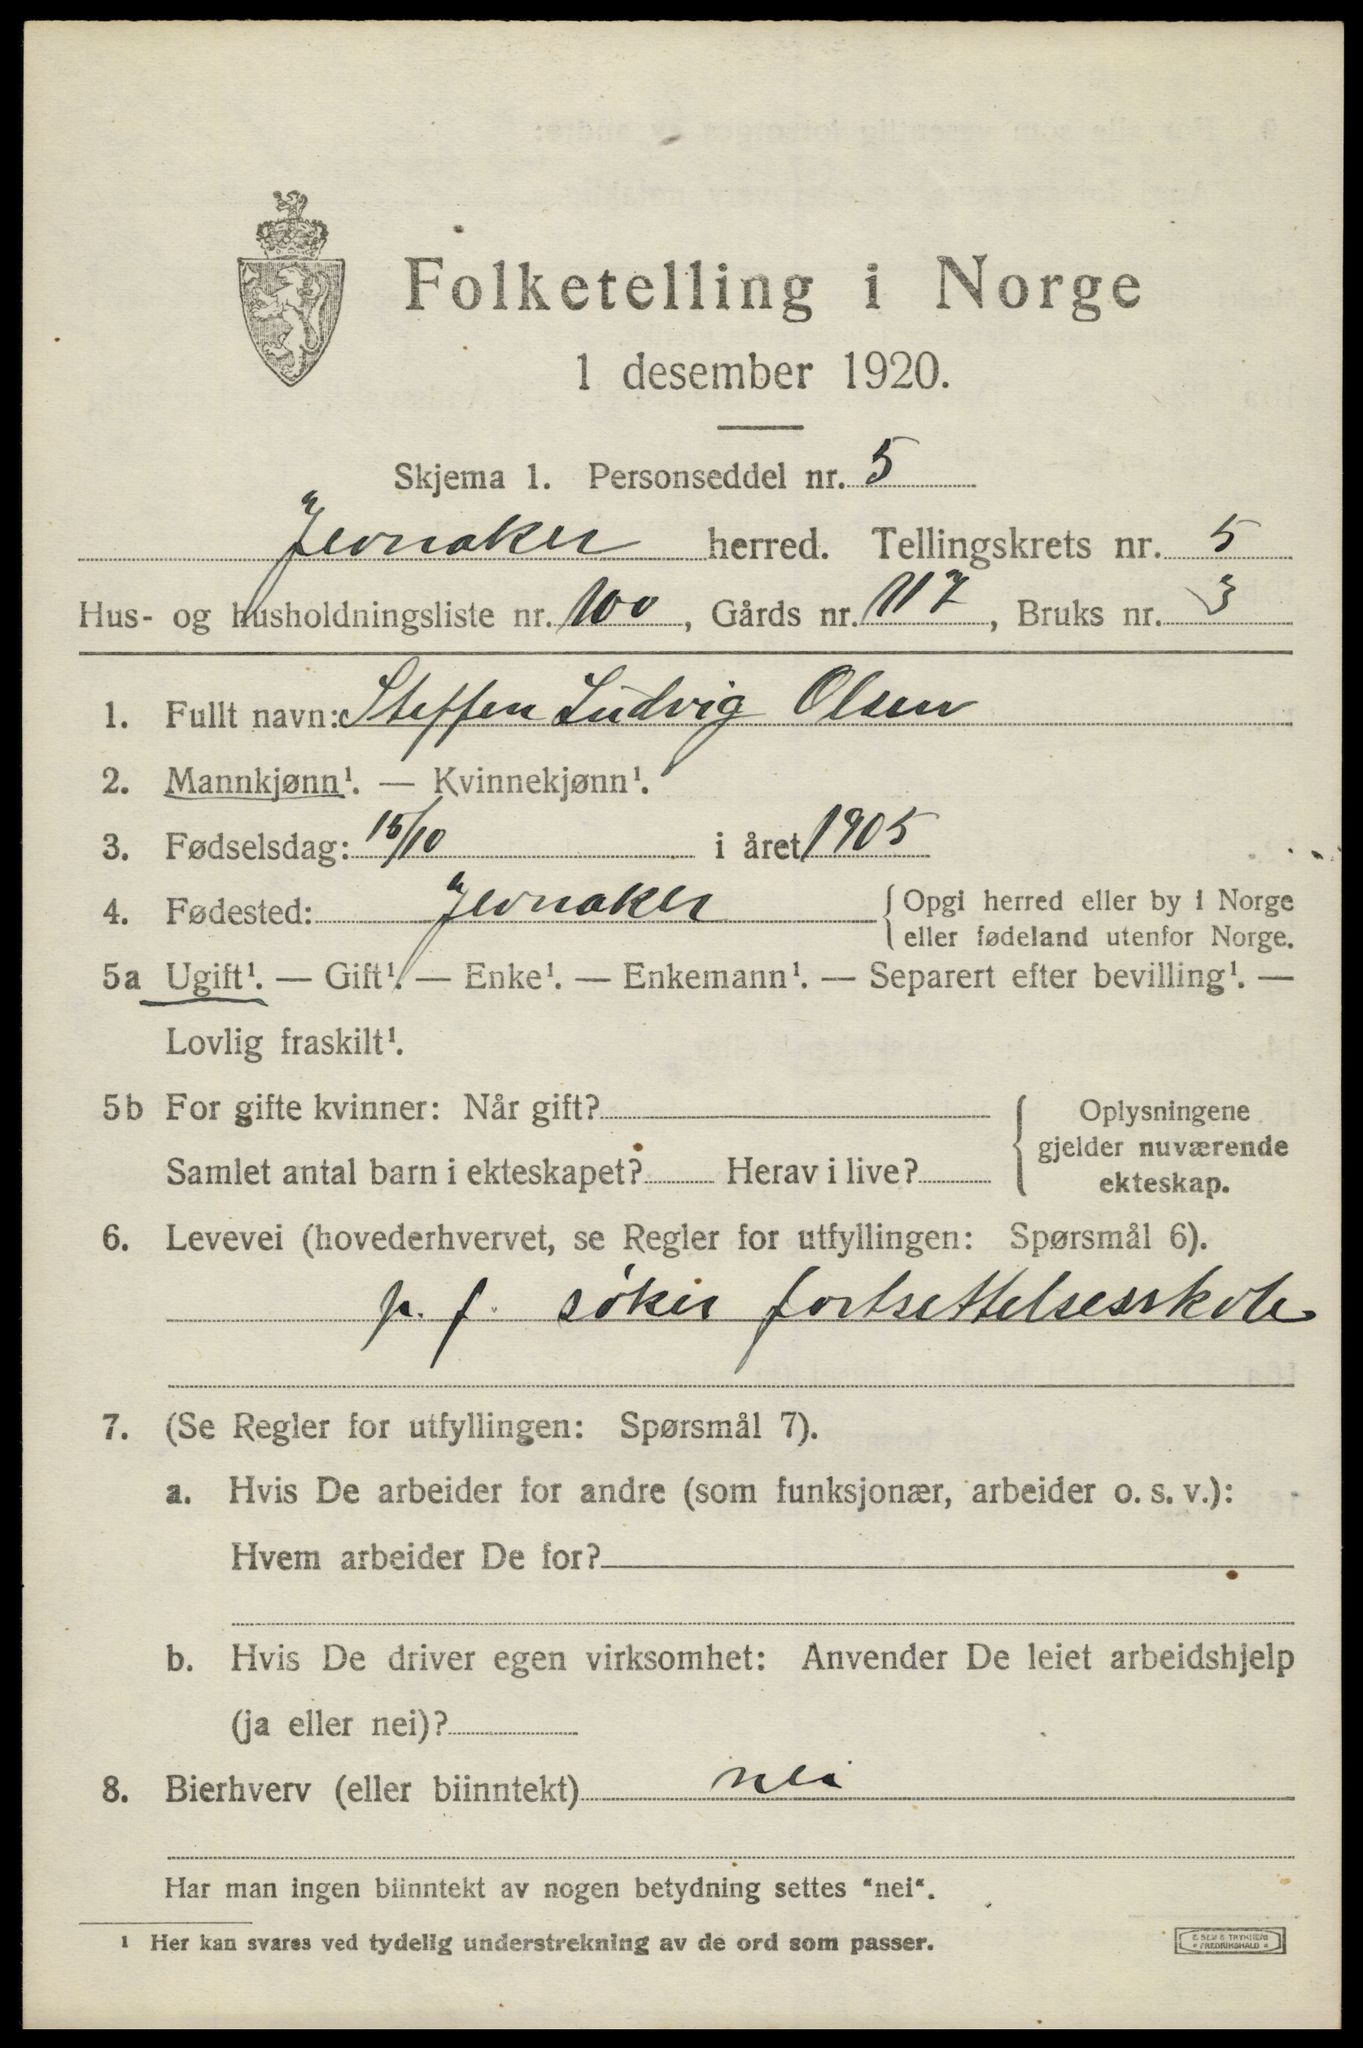 Folketelling i Norge
1 desember 1920.
Skjema 1. Personseddel nr. 5
Jevnaker herred. Tellingskrets nr. 5
Hus- og husholdningsliste nr. 100, Gårds nr. 117, Bruks nr. 3
1. Fullt navn: Steffen Ludvig Olsen
2. Mannkjønn¹. — Kvinnekjønn¹.
3. Fødselsdag: 15/10 i året 1905
4. Fødested: Jevnaker { Opgi herred eller by i Norge
eller fødeland utenfor Norge.
5a Ugift¹. — Gift¹. — Enke¹. — Enkemann¹. — Separert efter bevilling¹. —
Lovlig fraskilt¹.
5b For gifte kvinner: Når gift?
Samlet antal barn i ekteskapet? Herav i live?
{ Oplysningene
gjelder nuværende
ekteskap.
6. Levevei (hovederhvervet, se Regler for utfyllingen: Spørsmål 6).
p. f. søker fortsettelsesskole
7. (Se Regler for utfyllingen: Spørsmål 7).
a. Hvis De arbeider for andre (som funksjonær, arbeider o. s. v.):
Hvem arbeider De for?
b. Hvis De driver egen virksomhet: Anvender De leiet arbeidshjelp
(ja eller nei)?
8. Bierhverv (eller biinntekt) nei
Har man ingen biinntekt av nogen betydning settes "nei".
¹ Her kan svares ved tydelig understrekning av de ord som passer.